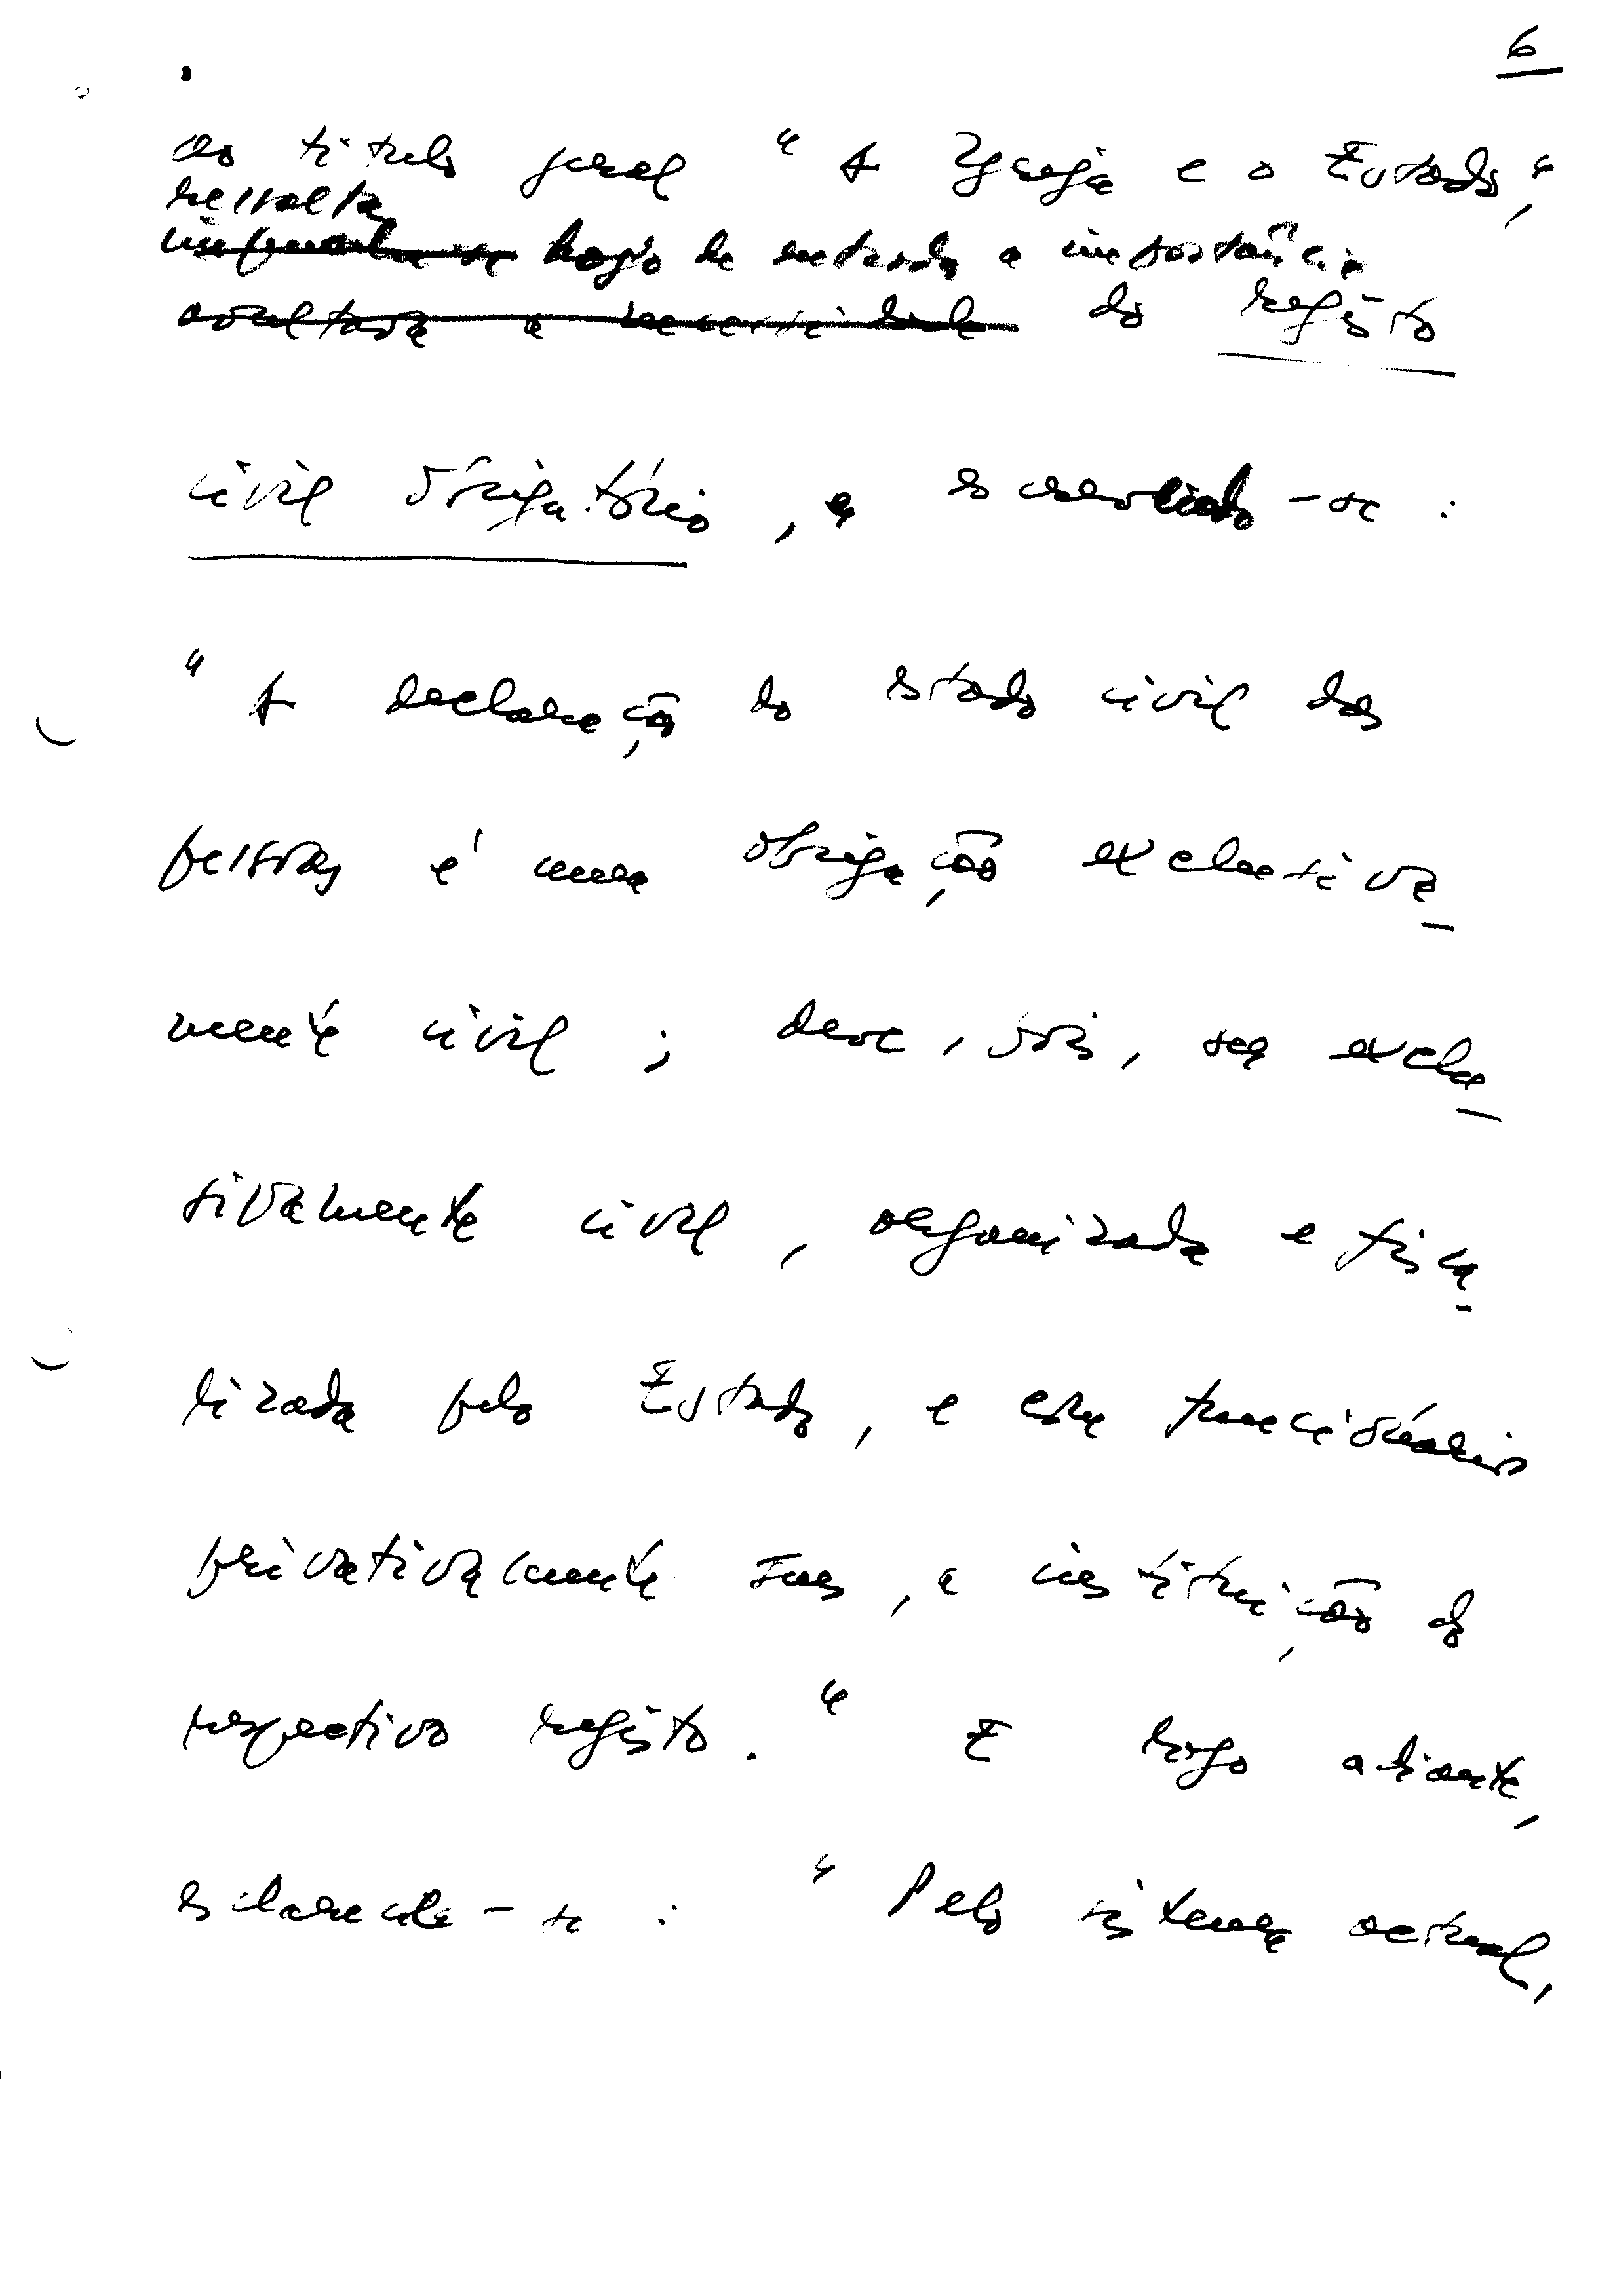 6
ao título geral "A Igreja e o Estado",
ressalta
logo de entrada a importância
avultava a necessidade do registo
civil obrigatório, e escreveu-se :
"A declaração do estado civil das
pessoas é uma obrigação exclusiva_
mente civil ; deve, pois, ser exclu_
sivamente civil, organizada e fisca_
lizada pelo Estado, e com funcionários
privativamente seus, a instituição do
respectivo registo." E logo adiante,
esclarecia-se : "Pelo sistema actual,